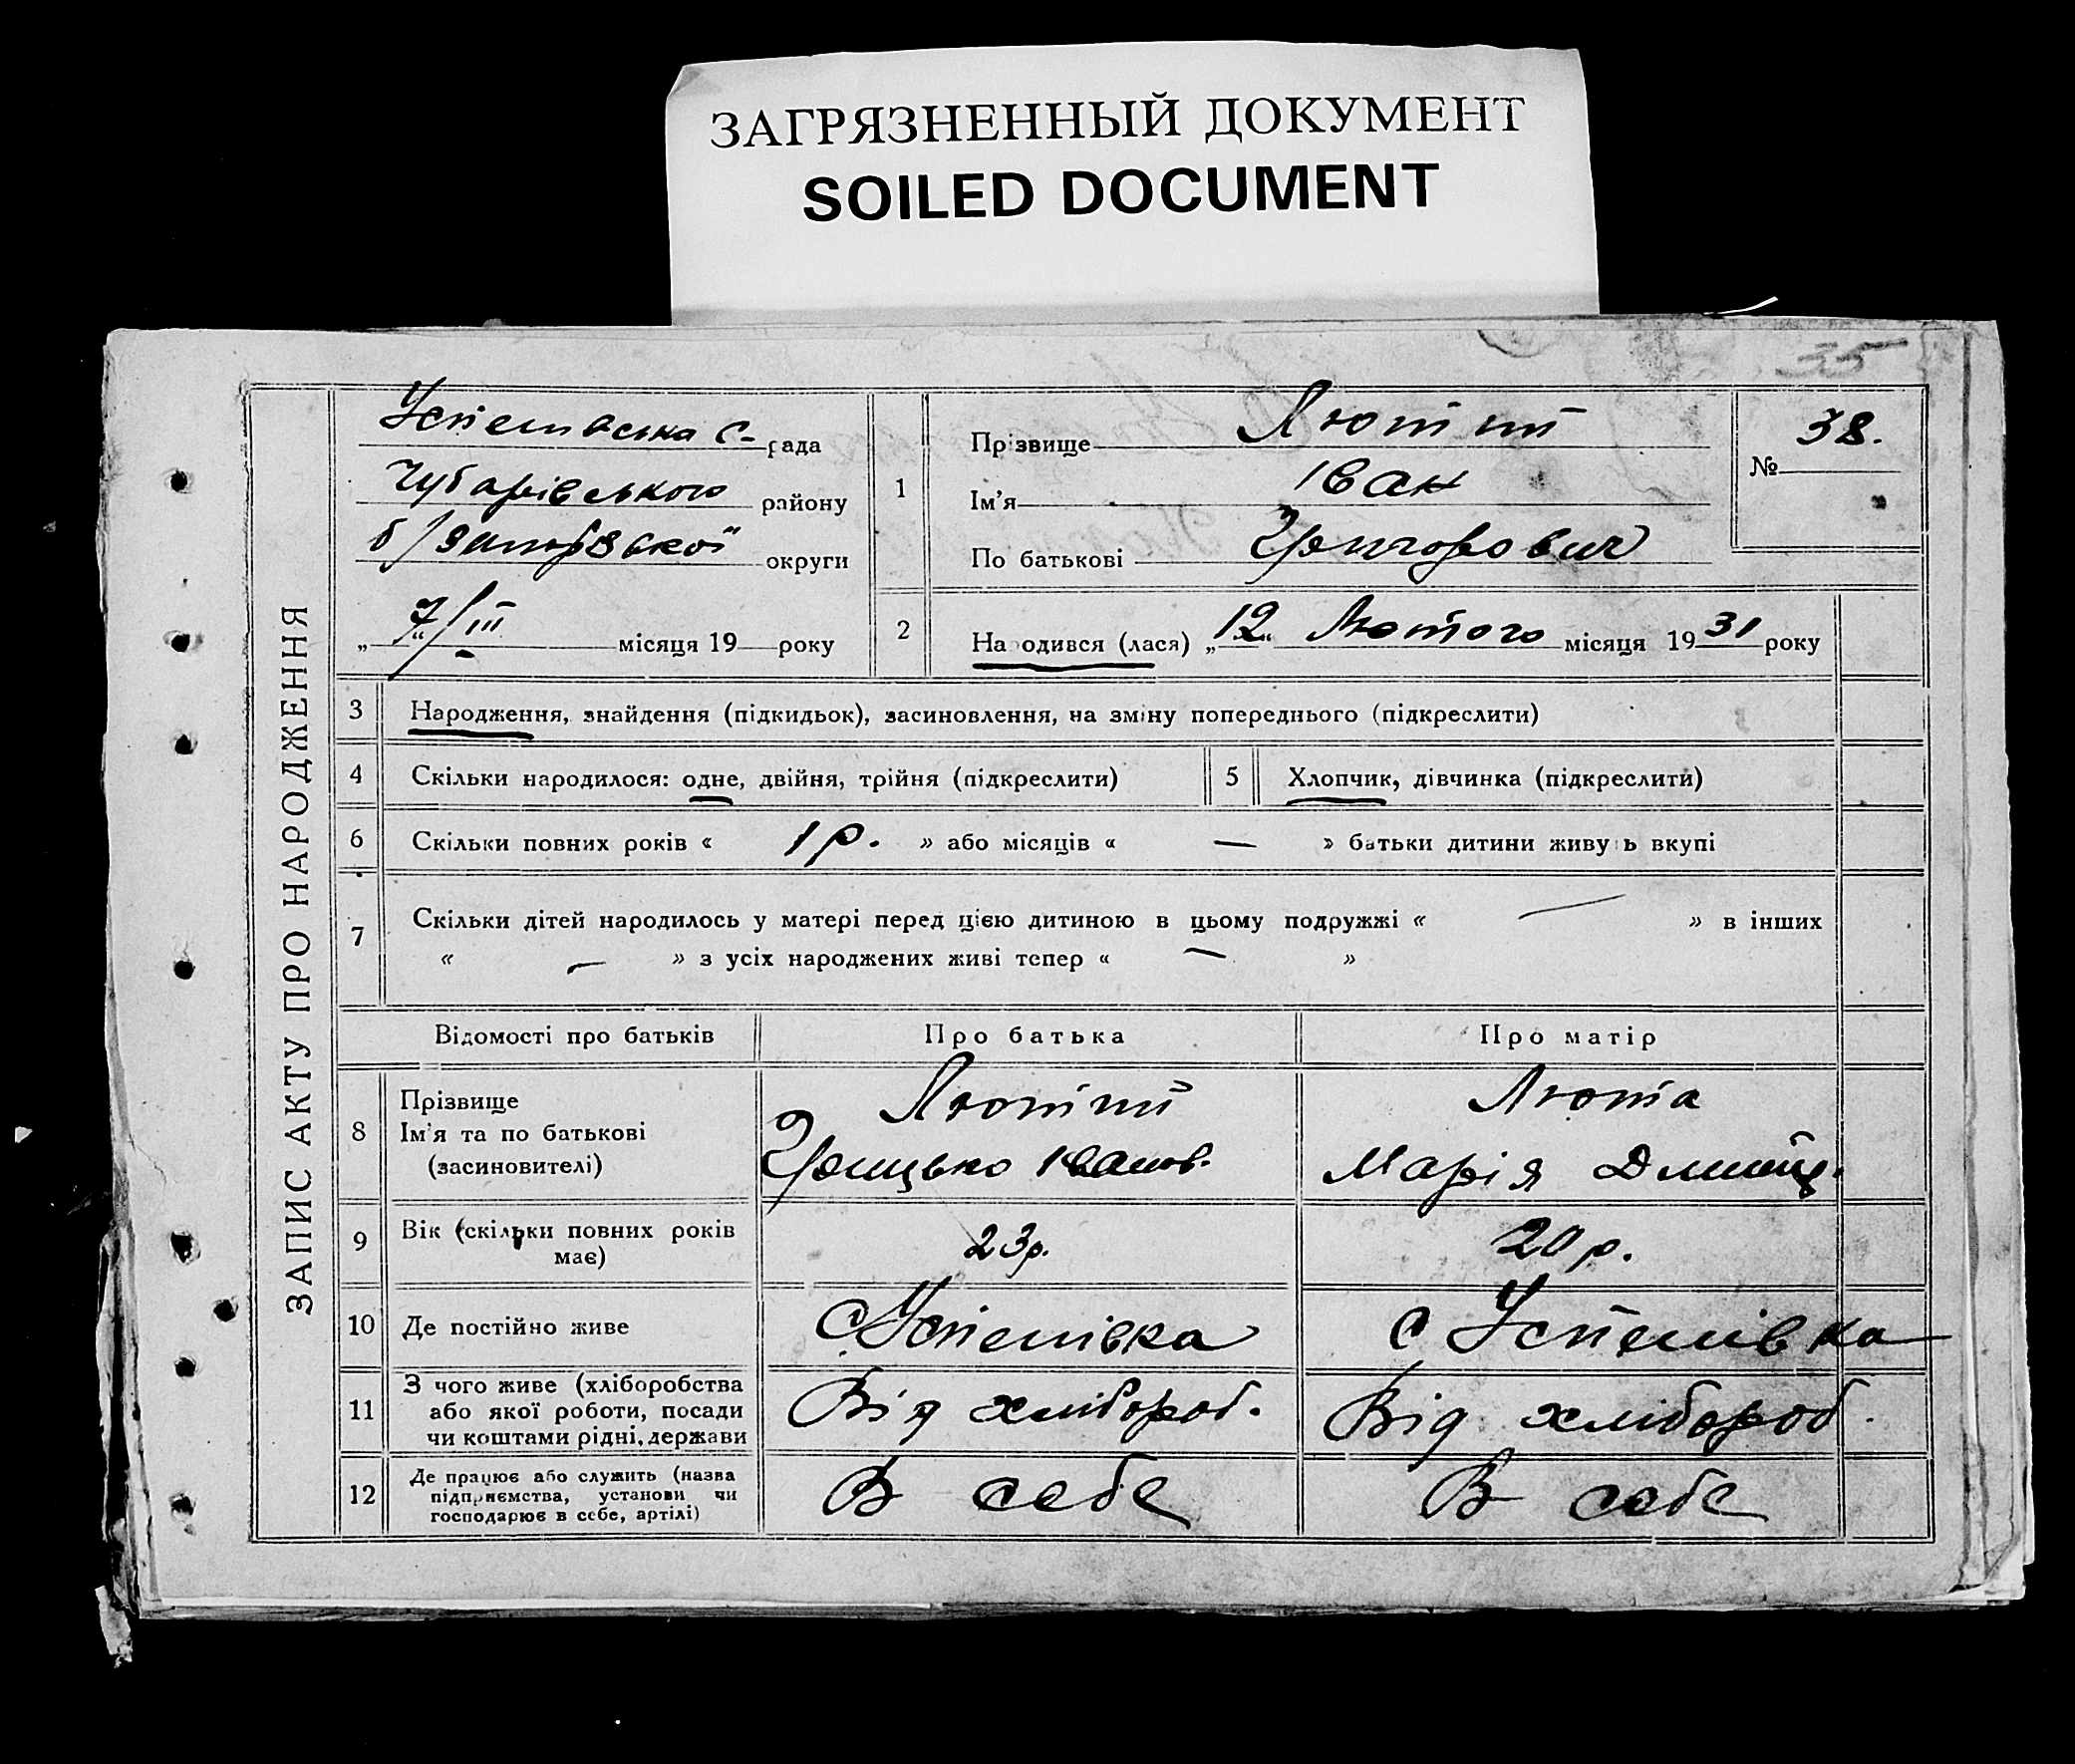 ЗАГРЯЗНЕННЫЙ ДОКУМЕНТ
SOILED DOCUMENT
35
ЗАПИС АКТУ ПРО НАРОДЖЕННЯ
Успенівська С. рада
Чубарівського району
б/Запорізької округи
„ 7/III місяця 19 року
1
Прізвище Лютий
Ім'я Іван
По батькові Григорович
№ 38.
2
Народився (лася) „12" Лютого місяця 1931 року
3 Народження, знайдення (підкидьок), засиновлення, на зміну попереднього (підкреслити)
4 Скільки народилося: одне, двійня, трійня (підкреслити) 5 Хлопчик, дівчинка (підкреслити)
6 Скільки повних років « 1 р. » або місяців « — » батьки дитини живуть вкупі
7 Скільки дітей народилось у матері перед цією дитиною в цьому подружжі « — » в інших
« — » з усіх народжених живі тепер « — »
Відомості про батьків Про батька Про матір
8 Прізвище Лютий Люта
Ім'я та по батькові Грицько Іванов. Марія Дмитр.
(засиновителі)
9 Вік (скільки повних років 23 р. 20 р.
має)
10 Де постійно живе С Успенівка с Успенівка
11 З чого живе (хліборобства Від хлібороб. Від хлібороб.
або якої роботи, посади
чи коштами рідні, держави
12 Де працює або служить (назва В себе В себе
підприємства, установи чи
господарює в себе, артілі)